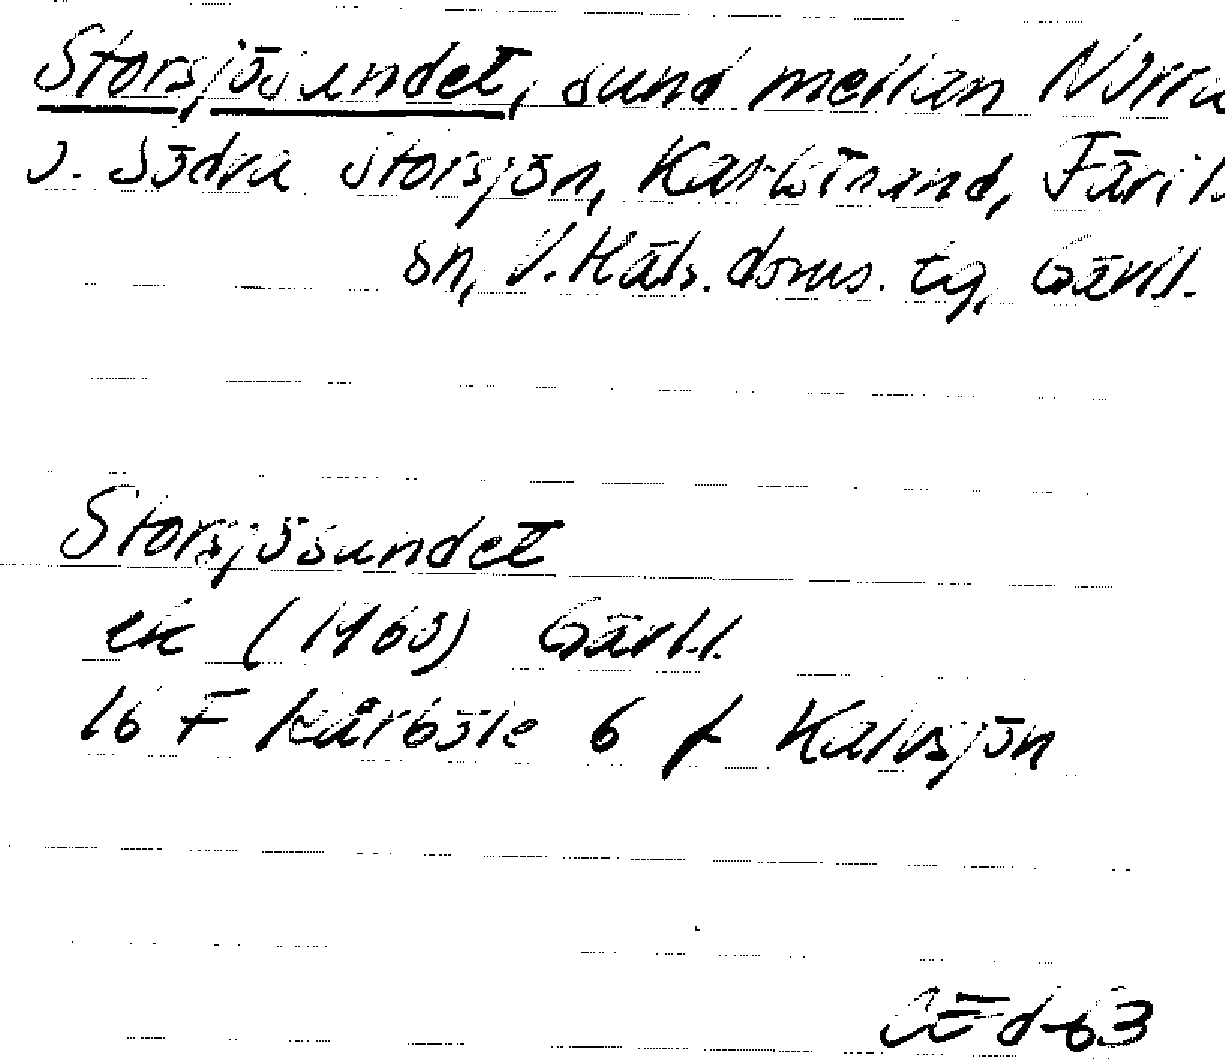 Storsjösundet, sund mellan Norra
o. Södra Storsjön, Karlstrand, Färila
sn, V. Häls. doms. tg, Gävl.
Storsjösundet
ek (1963) Gävl.l.
16 F Kårböle 6 f Kalvsjön
CÖ d-63